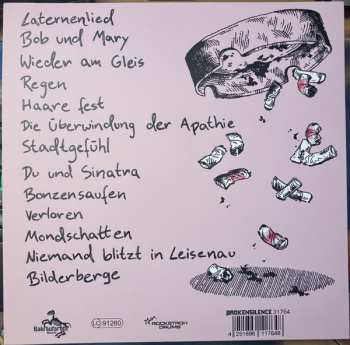 Laternenlied
Bob und Mary
Wieder am Gleis
Regen
Haare fest
Die Überwindung der Apathie
Stadtgefühl
Du und Sinatra
Bonzensaufen
Verloren
Mondschatten
Niemand blitzt in Leisenau
Bilderberge
LC 91280
ROCKSTROH
DRUMS
BROKENSILENCE 31764